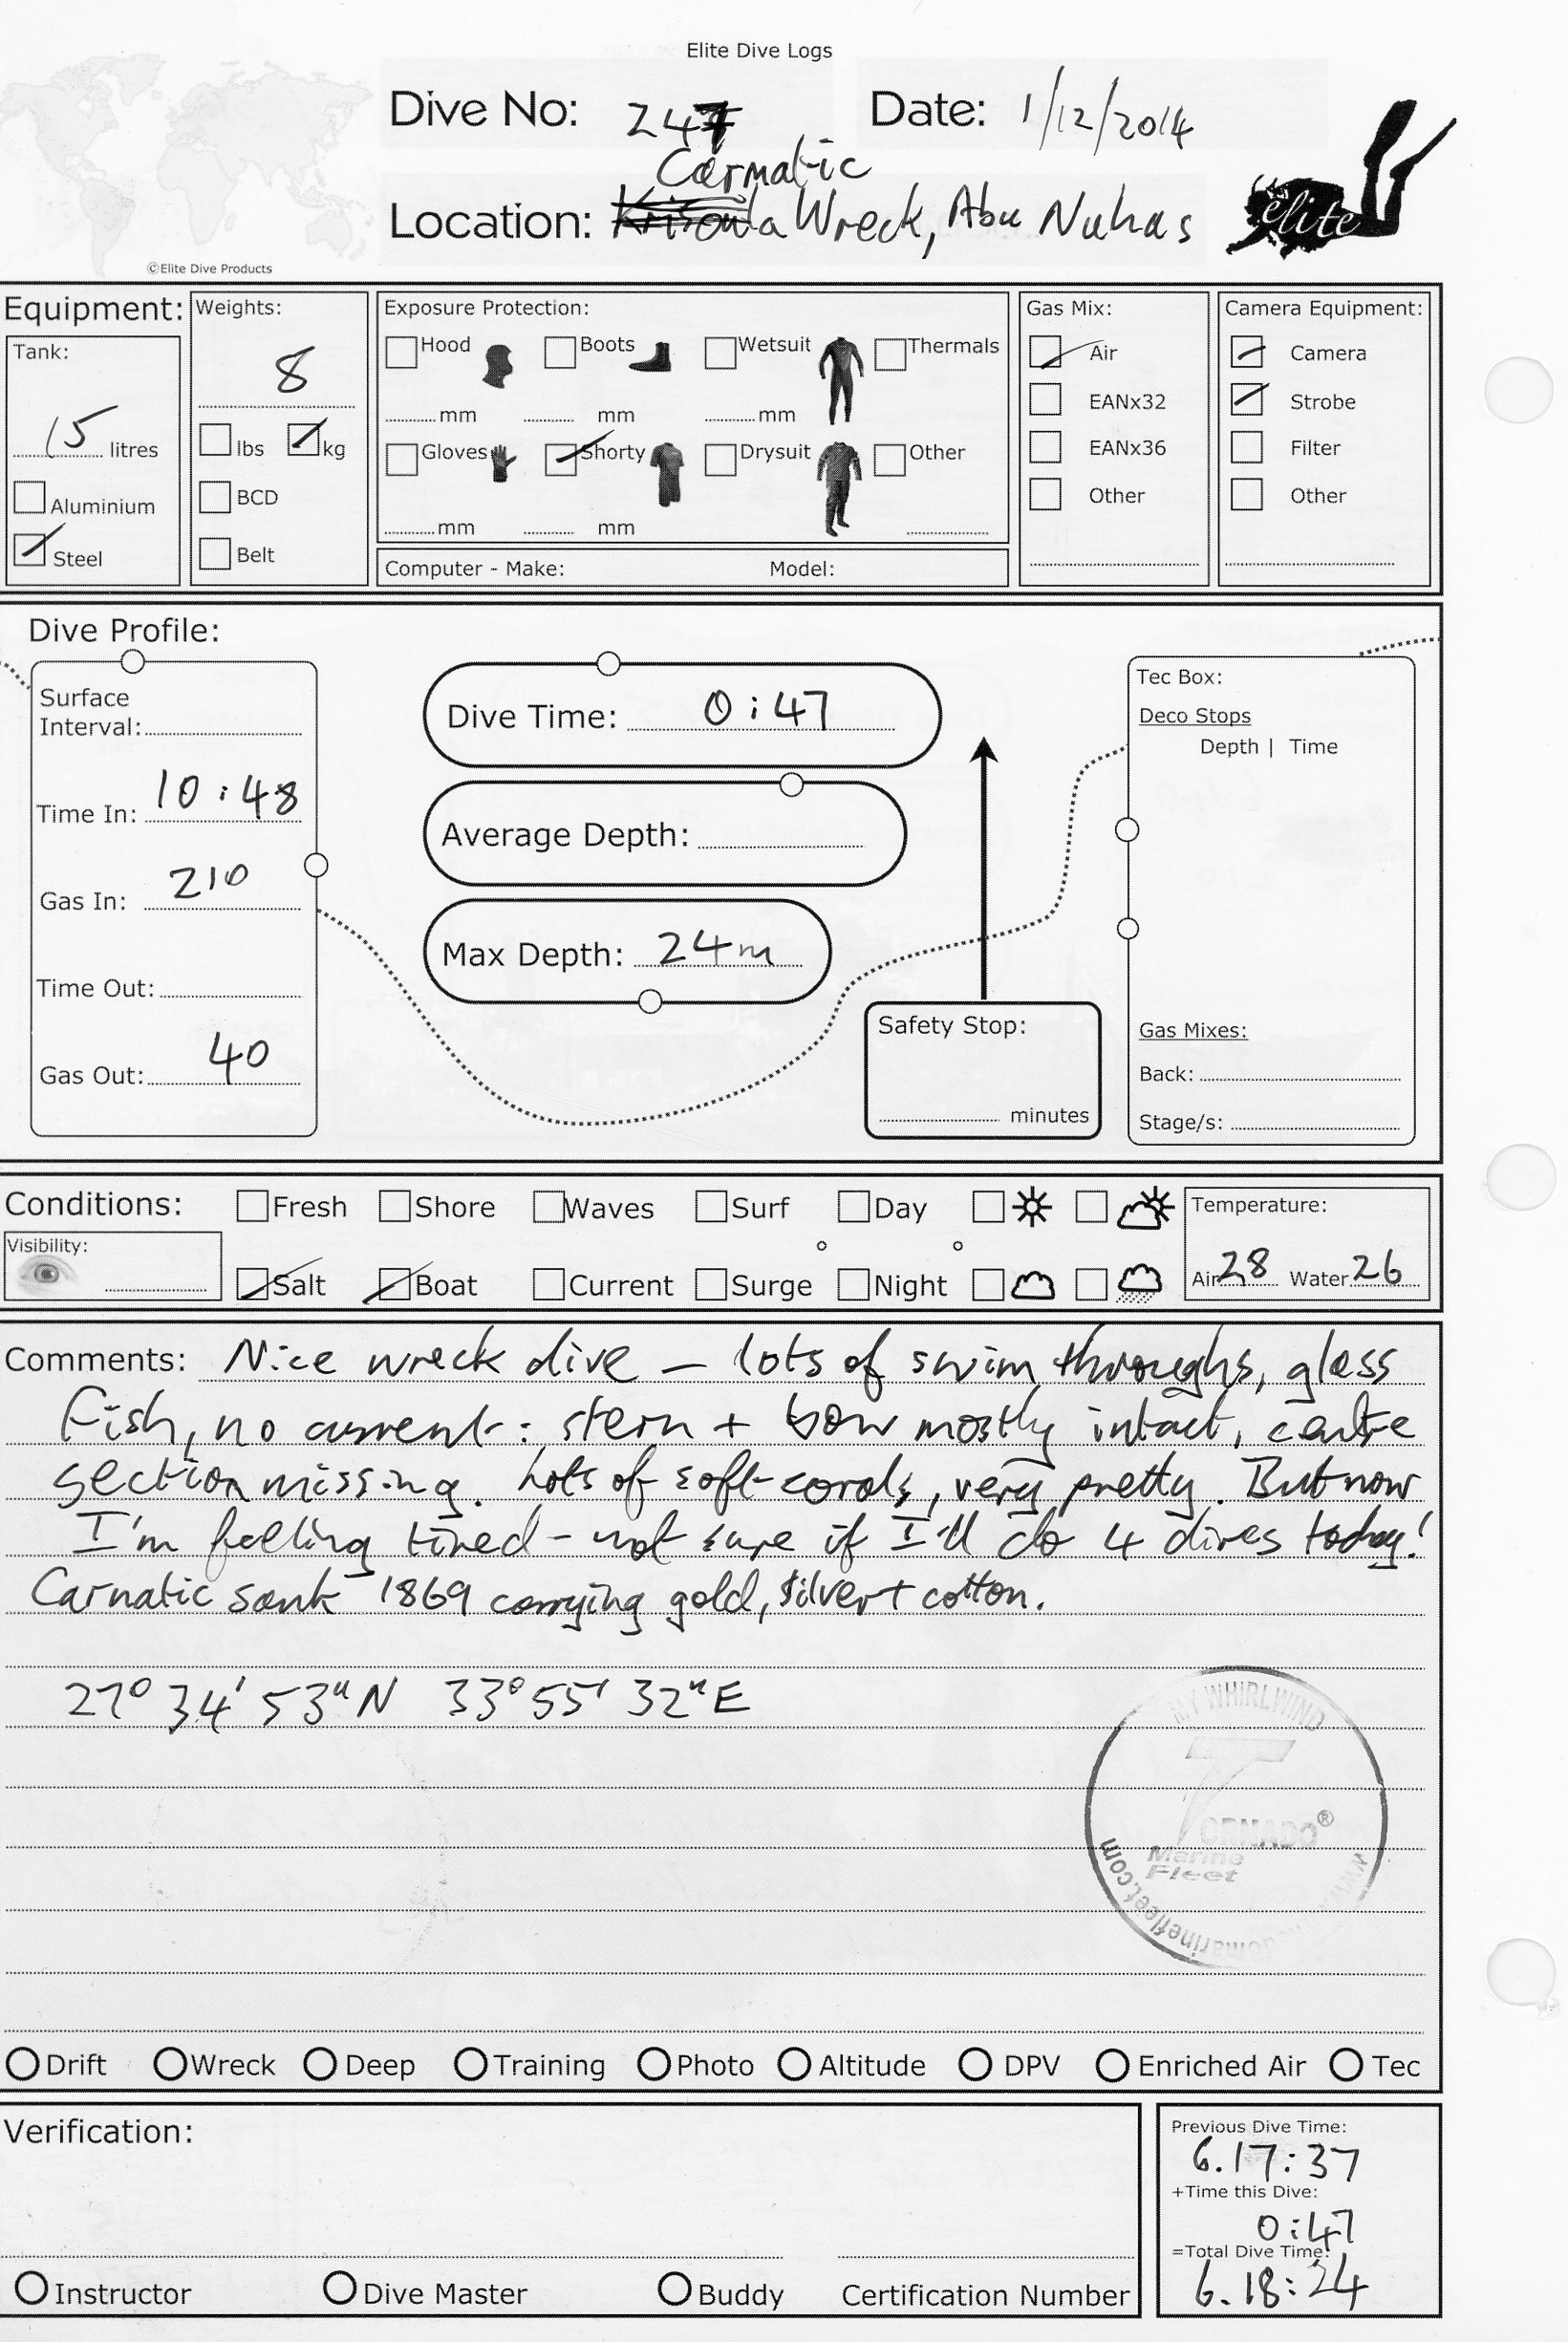 Elite Dive Logs
Dive No: 247
Date: 1/12/2014
Carnatic
Location: Wreck, Abu Nuhas
elite
©Elite Dive Products
Equipment:
Tank:
15 litres
Aluminium
Steel
Weights:
8
lbs kg
BCD
Belt
Exposure Protection:
Hood Boots Wetsuit Thermals
mm mm mm
Gloves Shorty Drysuit Other
mm mm
Computer - Make: Model:
Gas Mix:
Air
EANx32
EANx36
Other
Camera Equipment:
Camera
Strobe
Filter
Other
Dive Profile:
Surface
Interval:
Time In: 10:48
Gas In: 210
Time Out:
Gas Out: 40
Dive Time: 0:47
Average Depth:
Max Depth: 24m
Safety Stop:
minutes
Tec Box:
Deco Stops
Depth | Time
Gas Mixes:
Back:
Stage/s:
Conditions:
Visibility:
Fresh Shore Waves Surf Day
Salt Boat Current Surge Night
Temperature:
Air 28 Water 26
Comments: Nice wreck dive – lots of swim throughs, glass
fish, no current: stern + bow mostly intact, centre
section missing. Lots of soft corals, very pretty. But now
I'm feeling tired – not sure if I'll do 4 dives today!
Carnatic sank 1869 carrying gold, silver + cotton.
27° 34' 53" N 33° 55' 32" E
MY WHIRLWIND
TORNADO®
Marine
Fleet
Drift Wreck Deep Training Photo Altitude DPV Enriched Air Tec
Verification:
Instructor Dive Master Buddy Certification Number
Previous Dive Time:
6.17:37
+Time this Dive:
0:47
=Total Dive Time:
6.18:24